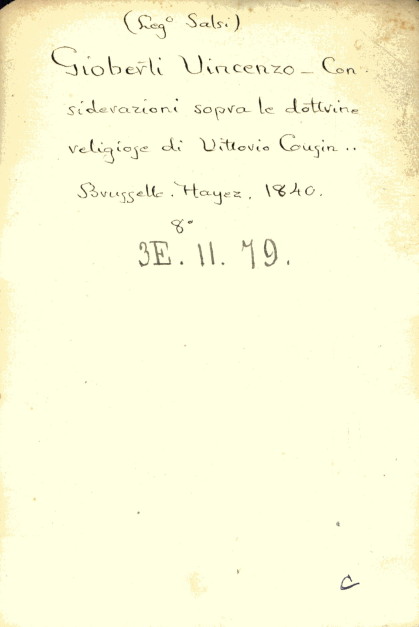 (Leg° Salsi)
Gioberti Vincenzo – Con
siderazioni sopra le dottrine
religiose di Vittorio Cousin ..
Brusselle. Hayez. 1840.
8°
3E. II. 79.
C